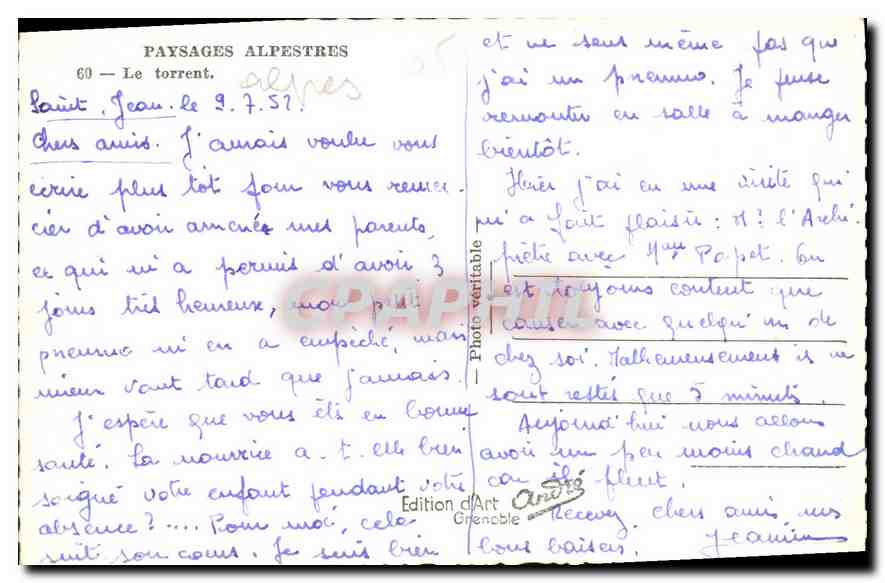 PAYSAGES ALPESTRES
60 — Le torrent.
alpes
Saint Jean. le 9.7.52.
Chers amis. J'aurais voulu vous
écrire plus tôt pour vous remer-
cier d'avoir amenés mes parents,
ce qui m'a permis d'avoir 3
jours très heureux, mon petit
pneumo m'en a empêché, mais
mieux vaut tard que jamais.
J'espère que vous êts en bonne
santé. La nourrice a-t-elle bien
soigné votre enfant pendant votre
absence?.... Pour moi, cela
suit son cours. Je suis bien
et ne sens même pas que
j'ai un pneumo. Je pense
remonter en salle à manger
bientôt.
Hier j'ai eu une visite qui
m'a fait plaisir : Mr l'Archi-
prêtre avec Mme Papet. On
est toujours content que
causer avec quelqu'un de
chez soi. Malheureusement ils ne
sont restés que 5 minuts.
Aujourd'hui nous allons
avoir un peu moins chaud
car il pleut.
Recevez chers amis mes
bons baisers. Jeanine
Photo véritable
Edition d'Art André
Grenoble
CPAPHIL